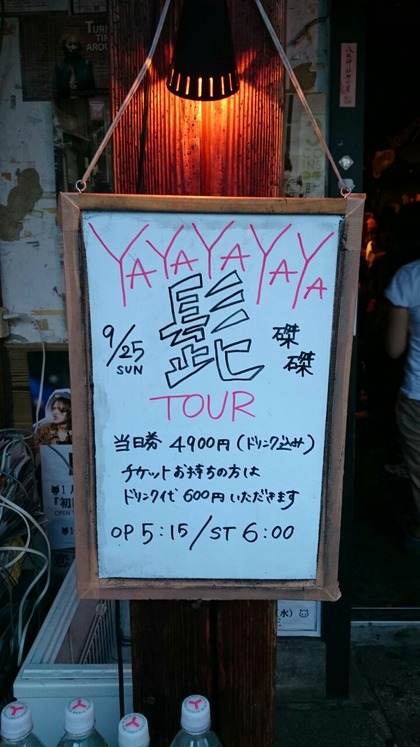 YAYAYAYAYA
髭
9/25
SUN
磔磔
TOUR
当日券 4900円(ドリンク込み)
チケットお持ちの方は
ドリンク代 600円いただきます
OP 5:15/ST 6:00
(水)